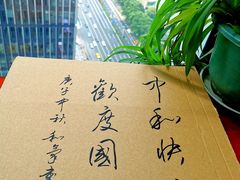 中秋快
歡度國
庚子中秋